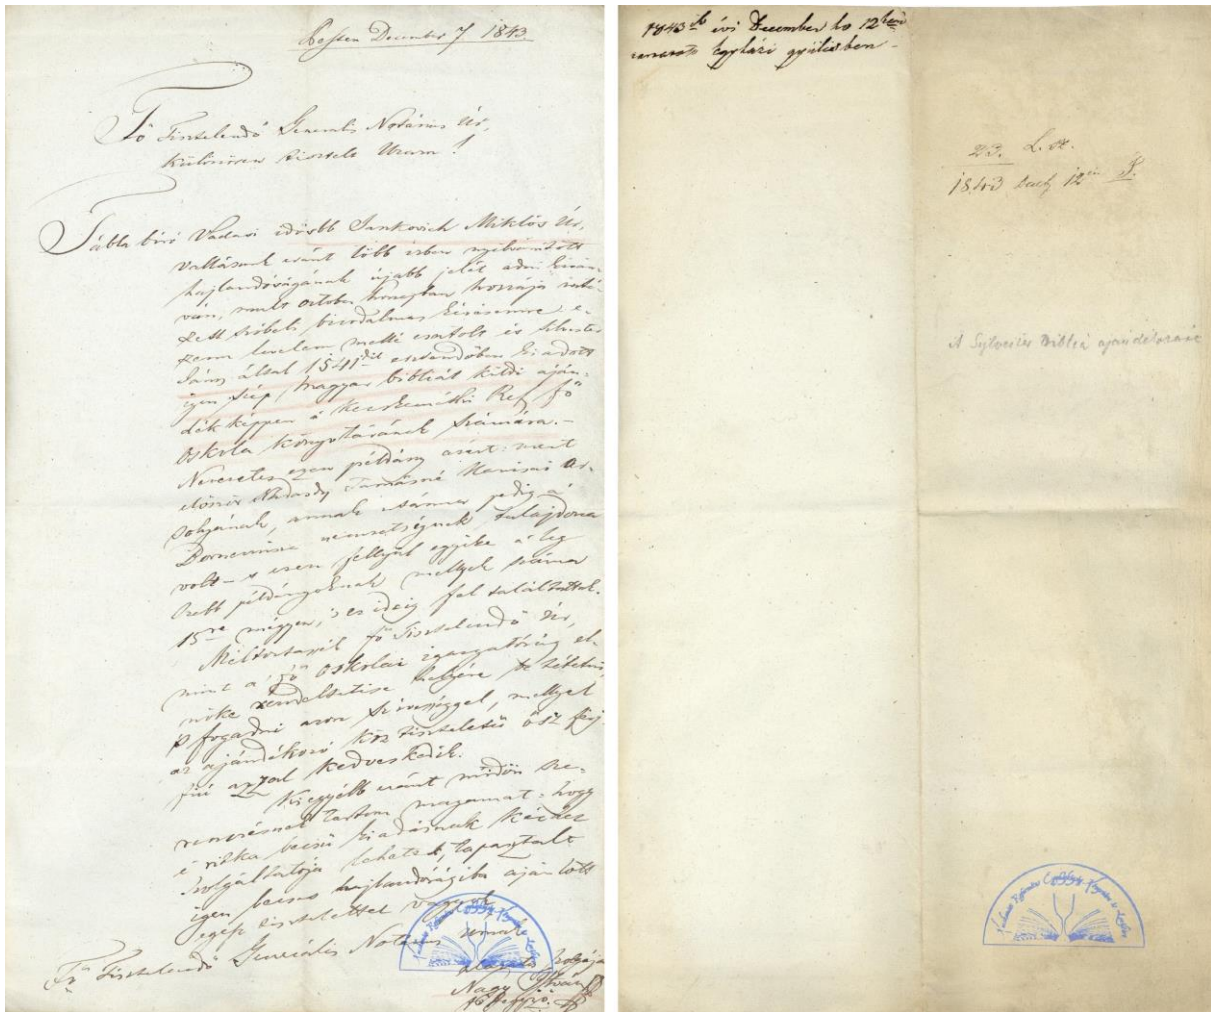 Pesten December 7 1843.
Fő Tisztelendő Generalis Notárius Úr,
különösen tisztelt Uram!
Tábla biró Vadasi idősbb Jankovich Miklós Úr,
vallásunk eránt több izben nyilvánitott
hajlandóságának újabb jelét adni kiván-
ván, mult october hónapban hozzája
szóbeli bizodalmas kérésemre e-
zenn levelem mellé csatolt és Silvester
János által 1541dik esztendőben kiadott
igen szép, magyar bibliát küldi aján-
dékképpen a' Kecskeméthi Ref. Fő
Oskola könyvtárának számára. –
Nevezetes ezen példány azért: mert
először Nádasdy Tamásné Kanisai Or-
solyának, annak utánna pedig a'
Bornemisza nemzetségnek tulajdona
volt – s ezen fellyül egyike a' leg
szebb példányoknak mellyek száma
15re mégyen, 's ez ideig fel találtattak.
Méltóztassék Fő Tisztelendő Úr,
mint a' fő oskolai igazgatóság el-
nöke rendeltetése helyére tétetni,
's fogadni azon szivességgel, mellyel
az ajándékozó köz tiszteletű ősz férj-
fiú azzal kedveskedik.
Kiegyébb eránt midőn sze-
rencsésnek tartom magamat, hogy
e' ritka becsű kiadásnak kézhez
szolgáltatója lehetek, tapasztalt
igen becses hajlandóságiba ajánlott
egész tisztelettel vagyok
Fő Tisztelendő Generális Notarius Urnak
alázatos szolgája
Nagy István
1843ik évi December hó 12kén
egyházi gyülésben –
23. L. sz.
1843 12én
A Sylvester Biblia ajándékozása